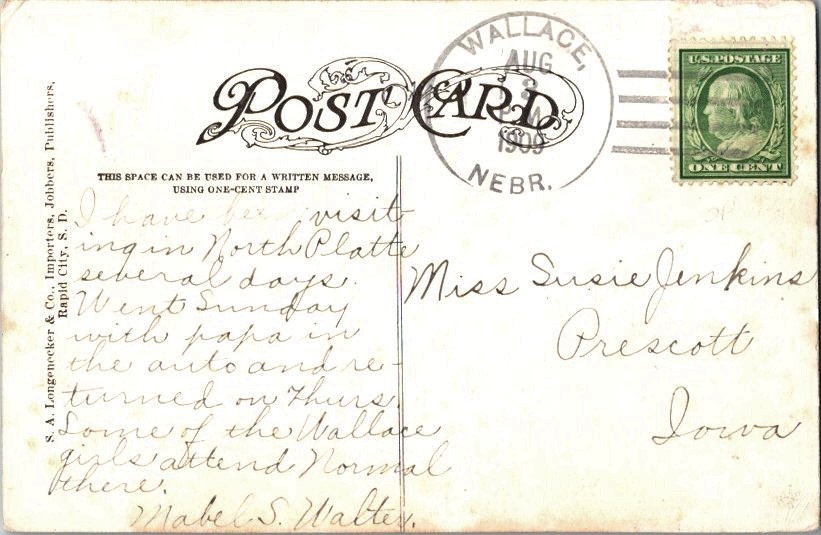 POST CARD
WALLACE,
AUG
3
1909
NEBR.
U.S. POSTAGE
ONE CENT
THIS SPACE CAN BE USED FOR A WRITTEN MESSAGE,
USING ONE-CENT STAMP
S. A. Longenecker & Co., Importers, Jobbers, Publishers,
Rapid City, S. D.
I have been visit-
ing in North Platte
several days.
Went Sunday
with papa in
the auto and re-
turned on Thurs.
Some of the Wallace
girls attend Normal
there.
Mabel S. Walter.
Miss Susie Jenkins
Prescott
Iowa